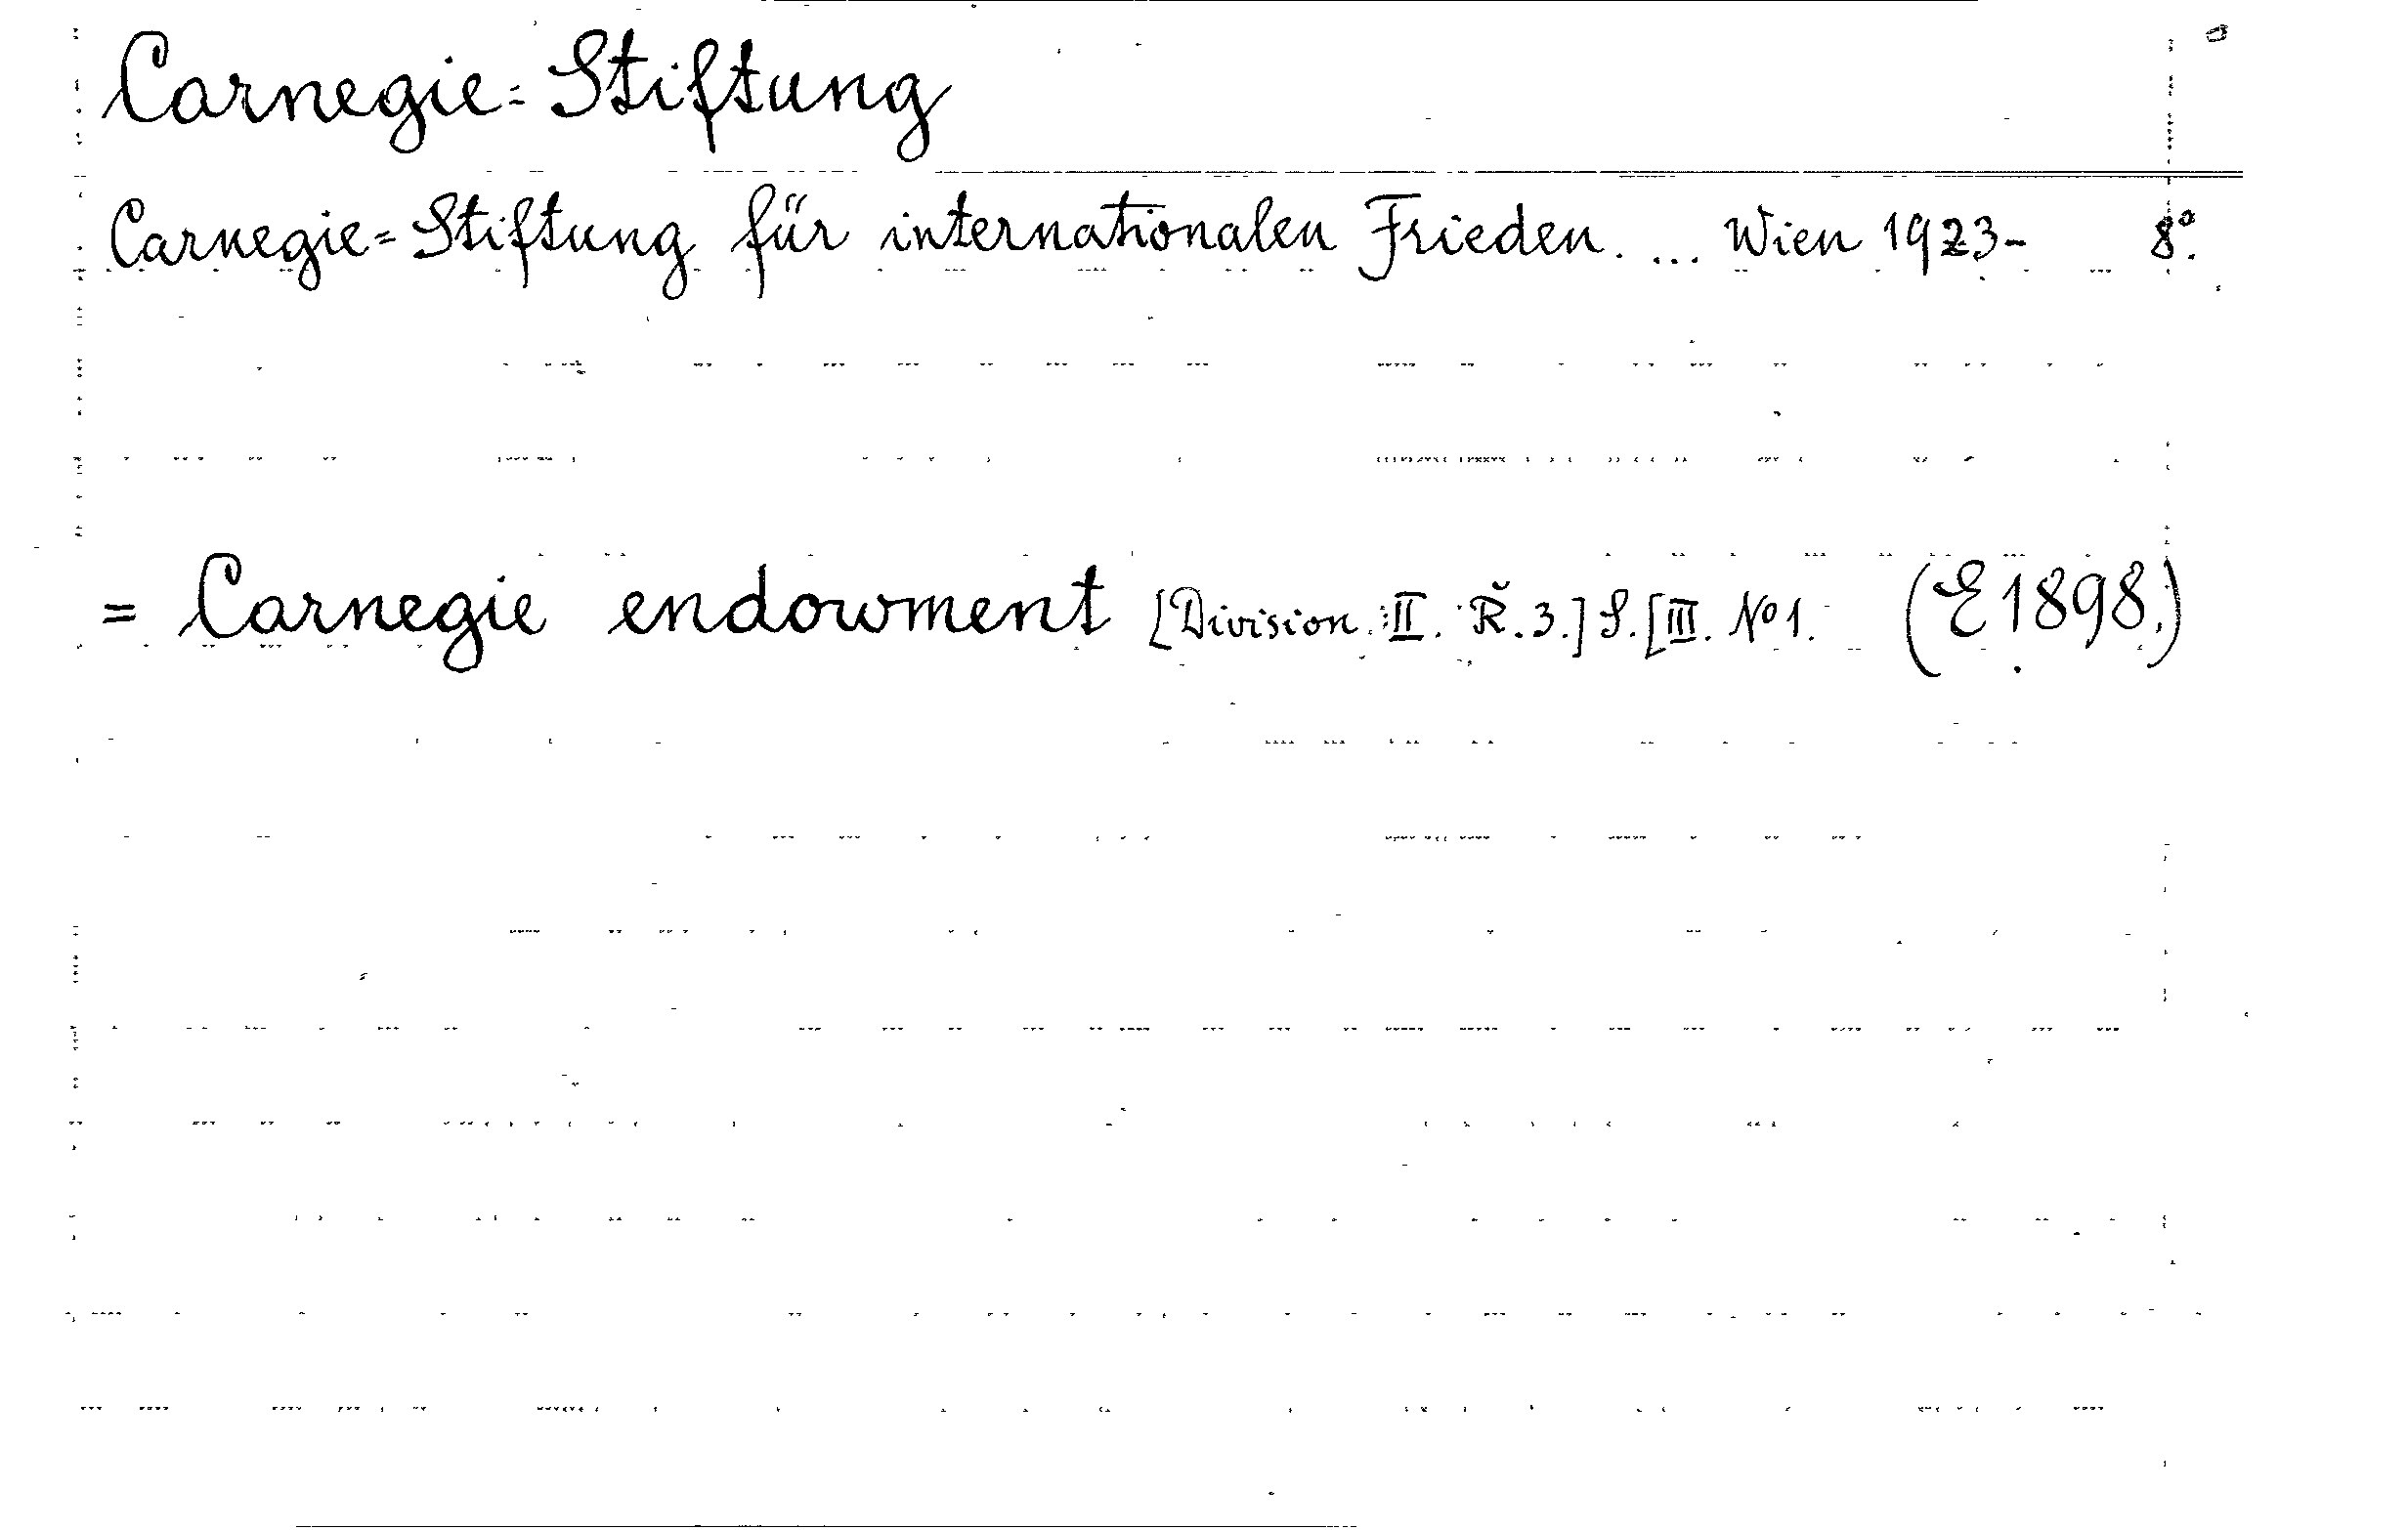 Carnegie=Stiftung
Carnegie=Stiftung für internationalen Frieden. ... Wien 1923- 8°.
= Carnegie endowment [Division. II. Ř. 3.] S. [III. No 1. (E 1898.)